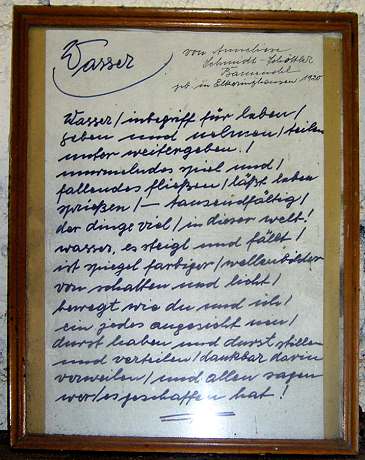 Wasser
von Annelise
Schmidt-Schöttler
geb. in Elkeringhausen 1920
Wasser / inbegriff für leben /
geben und nehmen / teilen
unter weitergeben /
murmelndes spiel und /
fallendes fließen / läßt leben
sprießen / – tausendfältig /
der dinge viel / in dieser welt!
wasser, es steigt und fällt /
ist spiegel farbiger / wellenbilder
von schatten und licht /
bewegt wie du und ich /
ein jedes angesicht nun /
durst haben und durst stillen
und verteilen / dankbar darin
verweilen / und allen sagen
wer / es geschaffen hat!